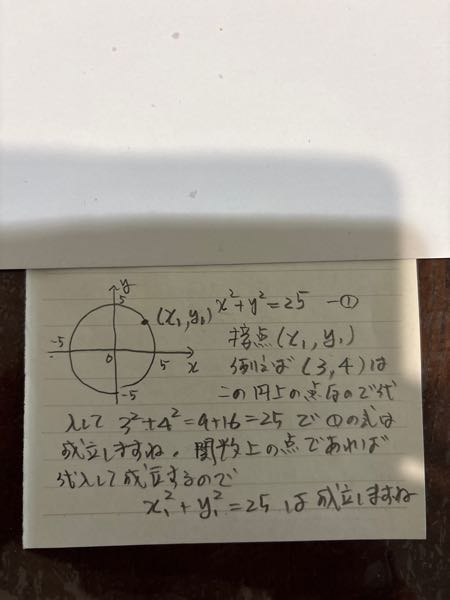 y
5
(x₁, y₁) x²+y²=25 —①
-5
0
5
x
-5
接点(x₁, y₁)
例えば (3, 4)は
この円上の点なので代
入して 3²+4²=9+16=25 で①の式は
成立しますね。関数上の点であれば
代入して成立するので
x₁²+y₁²=25 は成立しますね